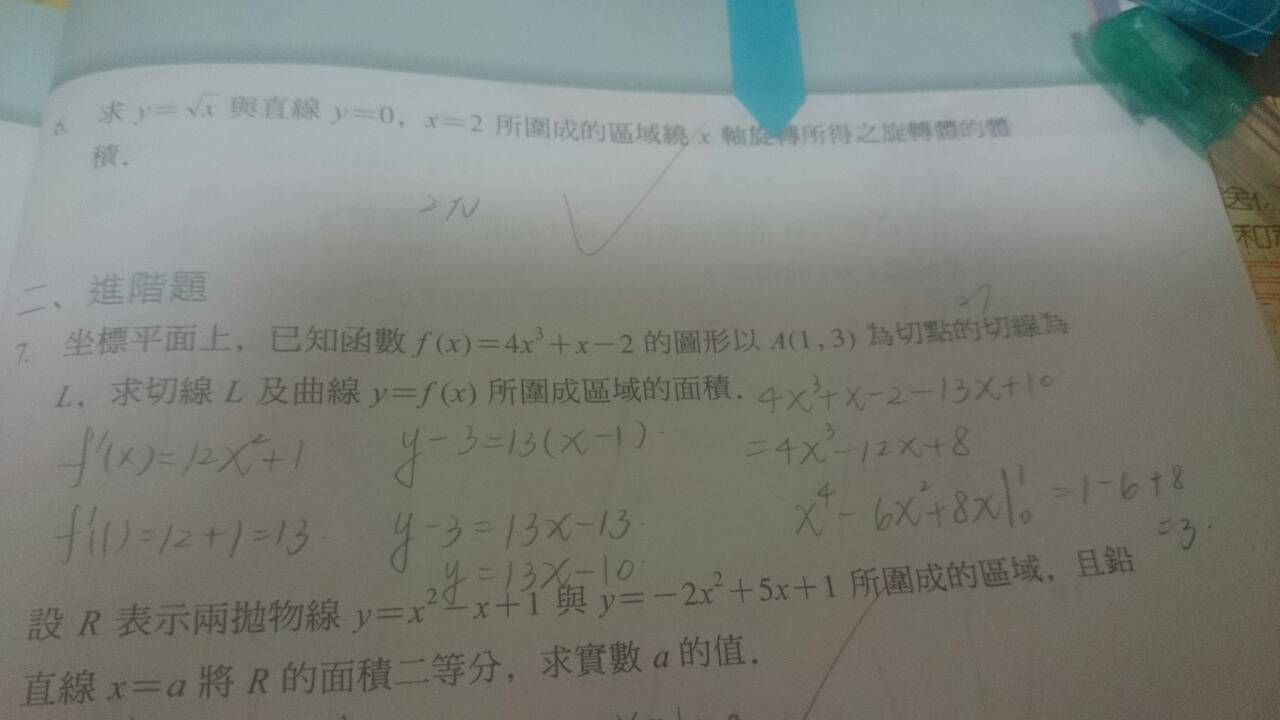 6. 求 y=√x 與直線 y=0, x=2 所圍成的區域繞 x 軸旋轉所得之旋轉體的體
積.
2π
二、進階題
27
7. 坐標平面上, 已知函數 f(x)=4x³+x-2 的圖形以 A(1,3) 為切點的切線為
L, 求切線 L 及曲線 y=f(x) 所圍成區域的面積.
4x³+x-2-13x+10
f'(x)=12x²+1
y-3=13(x-1).
=4x³-12x+8
f'(1)=12+1=13.
y-3=13x-13.
x⁴-6x²+8x|₀¹ =1-6+8
y=13x-10.
=3.
設 R 表示兩拋物線 y=x²-x+1 與 y=-2x²+5x+1 所圍成的區域, 且鉛
直線 x=a 將 R 的面積二等分, 求實數 a 的值.